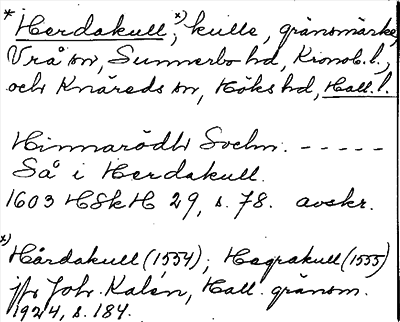 * Herdakull, x) kulle, gränsmärke,
Vrå sn, Sunnerbo hd, Kronob. l.,
och Knäreds sn, Höks hd, Hall. l.
Hinnarödh Sochn. - - - - -
Så i Herdakull.
1603 HSkH 29, s. 78. avskr.
x)
Hårdakull (1554); Hagrakull (1555)
jfr Joh. Kalén, Hall. gränsm.
1924, s. 184.